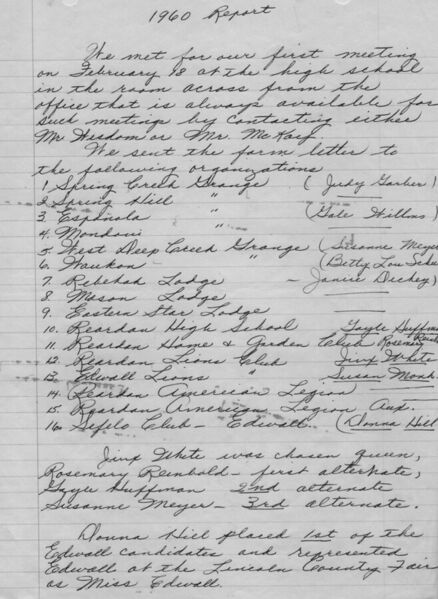 1960 Report
We met for our first meeting
on February 18 at the high school
in the room across from the
office that is always available for
such meetings by contacting either
Mr Wisdom or Mr. McKay
We sent the form letter to
the following organizations
1 Spring Creek Grange (Judy Garber)
2 Spring Hill "
3 Espanola " (Gale Willms)
4. Mondovi "
5. West Deep Creek Grange (Susanne Meyer
6. Waukon " (Betty Lou
7. Rebekah Lodge - Janice Dickey)
8 Mason Lodge
9. Eastern Star Lodge
10. Reardan High School Gayle Huffman
11. Reardan Home & Garden Club Rosemary Reinb
12. Reardan Lions Club Jinx White
13. Edwall Lions " Susan Monk
14. Reardan American Legion
15. Reardan American Legion Aux.
16. Sefelo Club - Edwall. (Donna Hill
Jinx White was chosen queen,
Rosemary Reinbold - first alternate,
Gayle Huffman 2nd alternate
Susanne Meyer - 3rd alternate.
Donna Hill placed 1st of the
Edwall candidates and represented
Edwall at the Lincoln County Fair
as Miss Edwall.